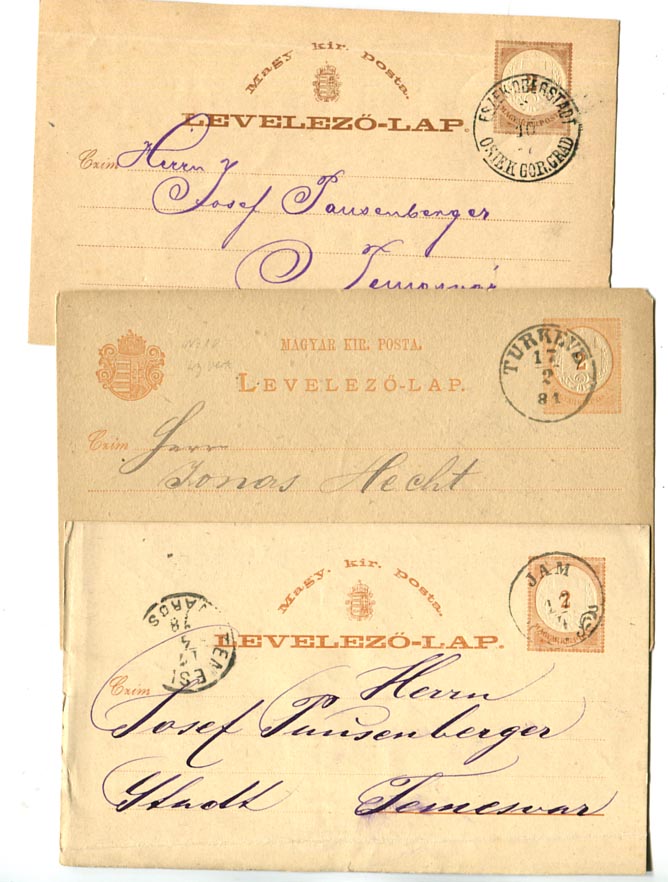 Magy. kir. posta.
LEVELEZŐ-LAP.
ESZEK-OBERSTADT
10
OSIEK GOR. GRAD
Czim Herrn
Josef Pausenberger
Temesvár
MAGYAR KIR. POSTA.
LEVELEZŐ-LAP.
TURKEVE
17
2
81
2
Czim Herr
Jonas Hecht
Magy. kir. posta.
LEVELEZŐ-LAP.
JAM
2
17
TEMES
VAROS
17
3
78
Czim Herrn
Josef Pausenberger
Stadt Temesvar